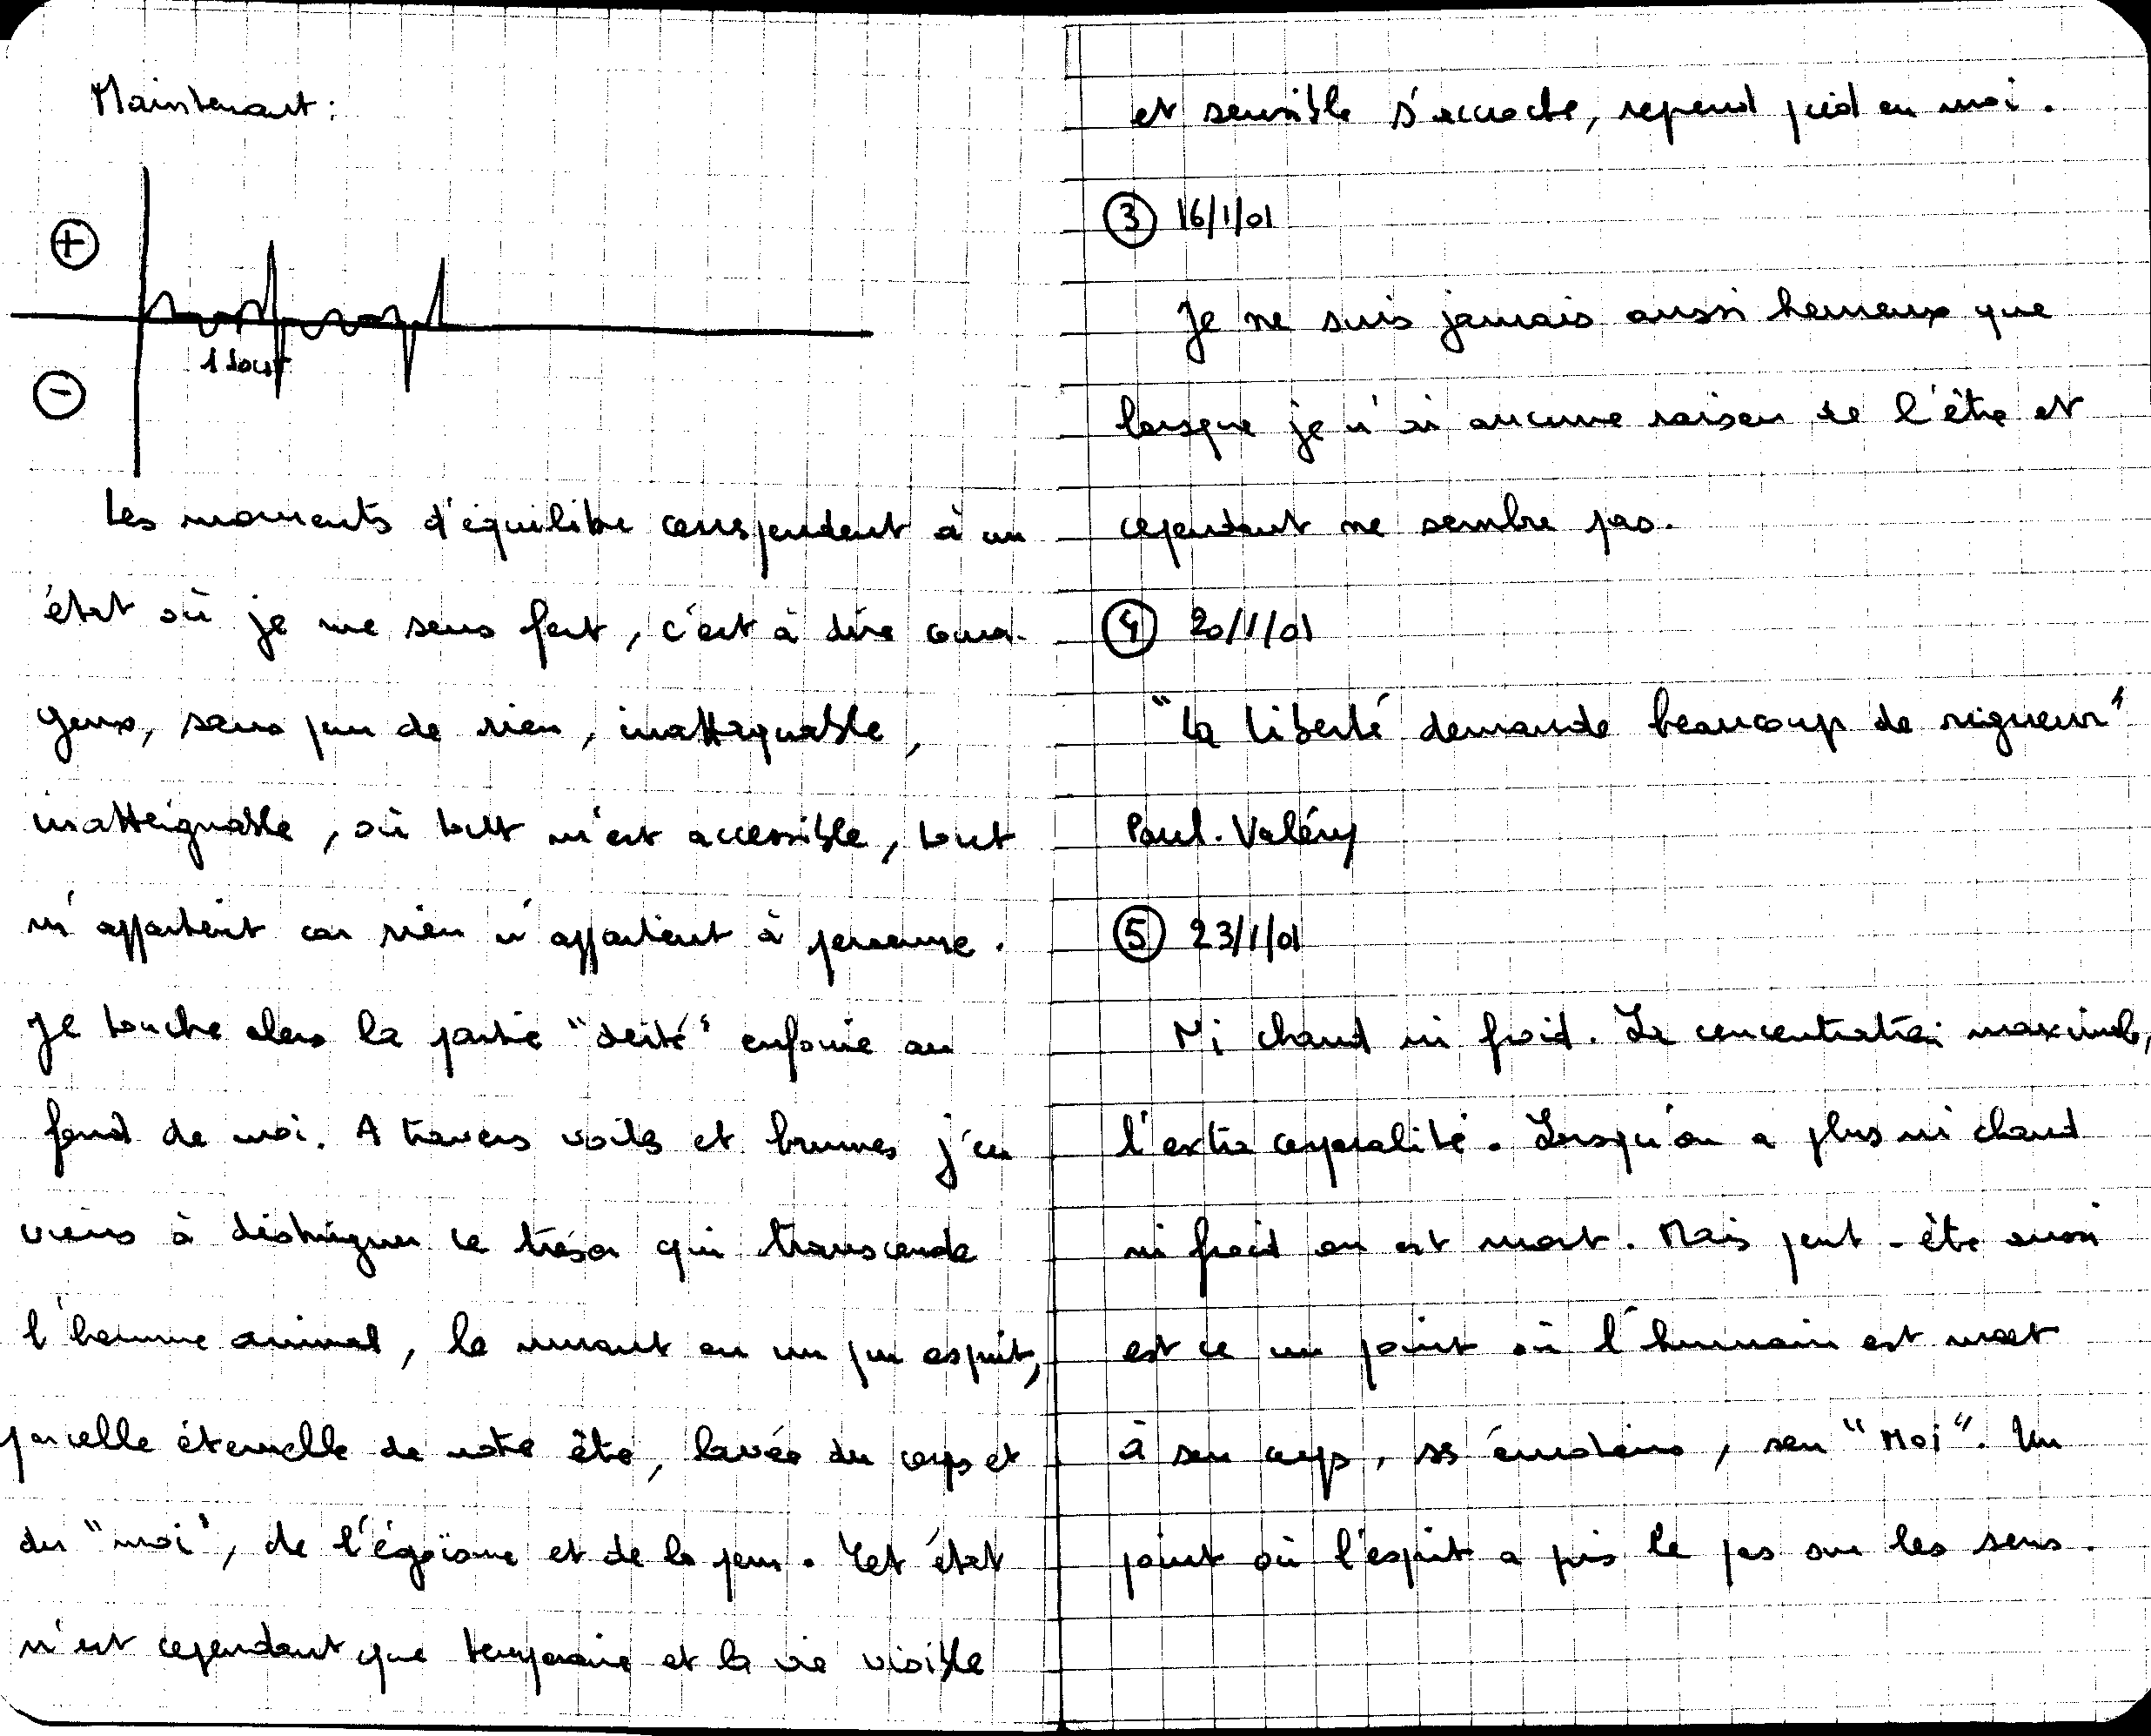 Maintenant :
+
-
Les moments d'équilibre correspondent à un
état où je me sens fort, c'est à dire coura-
geux, sans peur de rien, inattaquable,
inatteignable, où tout m'est accessible, tout
m'appartient car rien n'appartient à personne.
Je touche alors la partie "déité" enfouie au
fond de moi. A travers voiles et brumes j'en
viens à distinguer ce trésor qui transcende
l'homme animal, le muant en un pur esprit,
parcelle éternelle de notre être, lavée du corps et
du "moi", de l'égoïsme et de la peur. Cet état
n'est cependant que temporaire et la vie visible
et sensible s'accroche, reprend pied en moi.
3 16/1/01
Je ne suis jamais aussi heureux que
lorsque je n'ai aucune raison de l'être et
cependant ne semble pas.
4 20/1/01
"La liberté demande beaucoup de rigueur"
Paul. Valéry
5 23/1/01
Ni chaud ni froid. La concentration maximale,
l'extra corporalité. Lorsqu'on a plus ni chaud
ni froid on est mort. Mais peut-être aussi
est ce un point où l'humain est mort
à son corps, ses émotions, son "Moi". Un
point où l'esprit a pris le pas sur les sens.